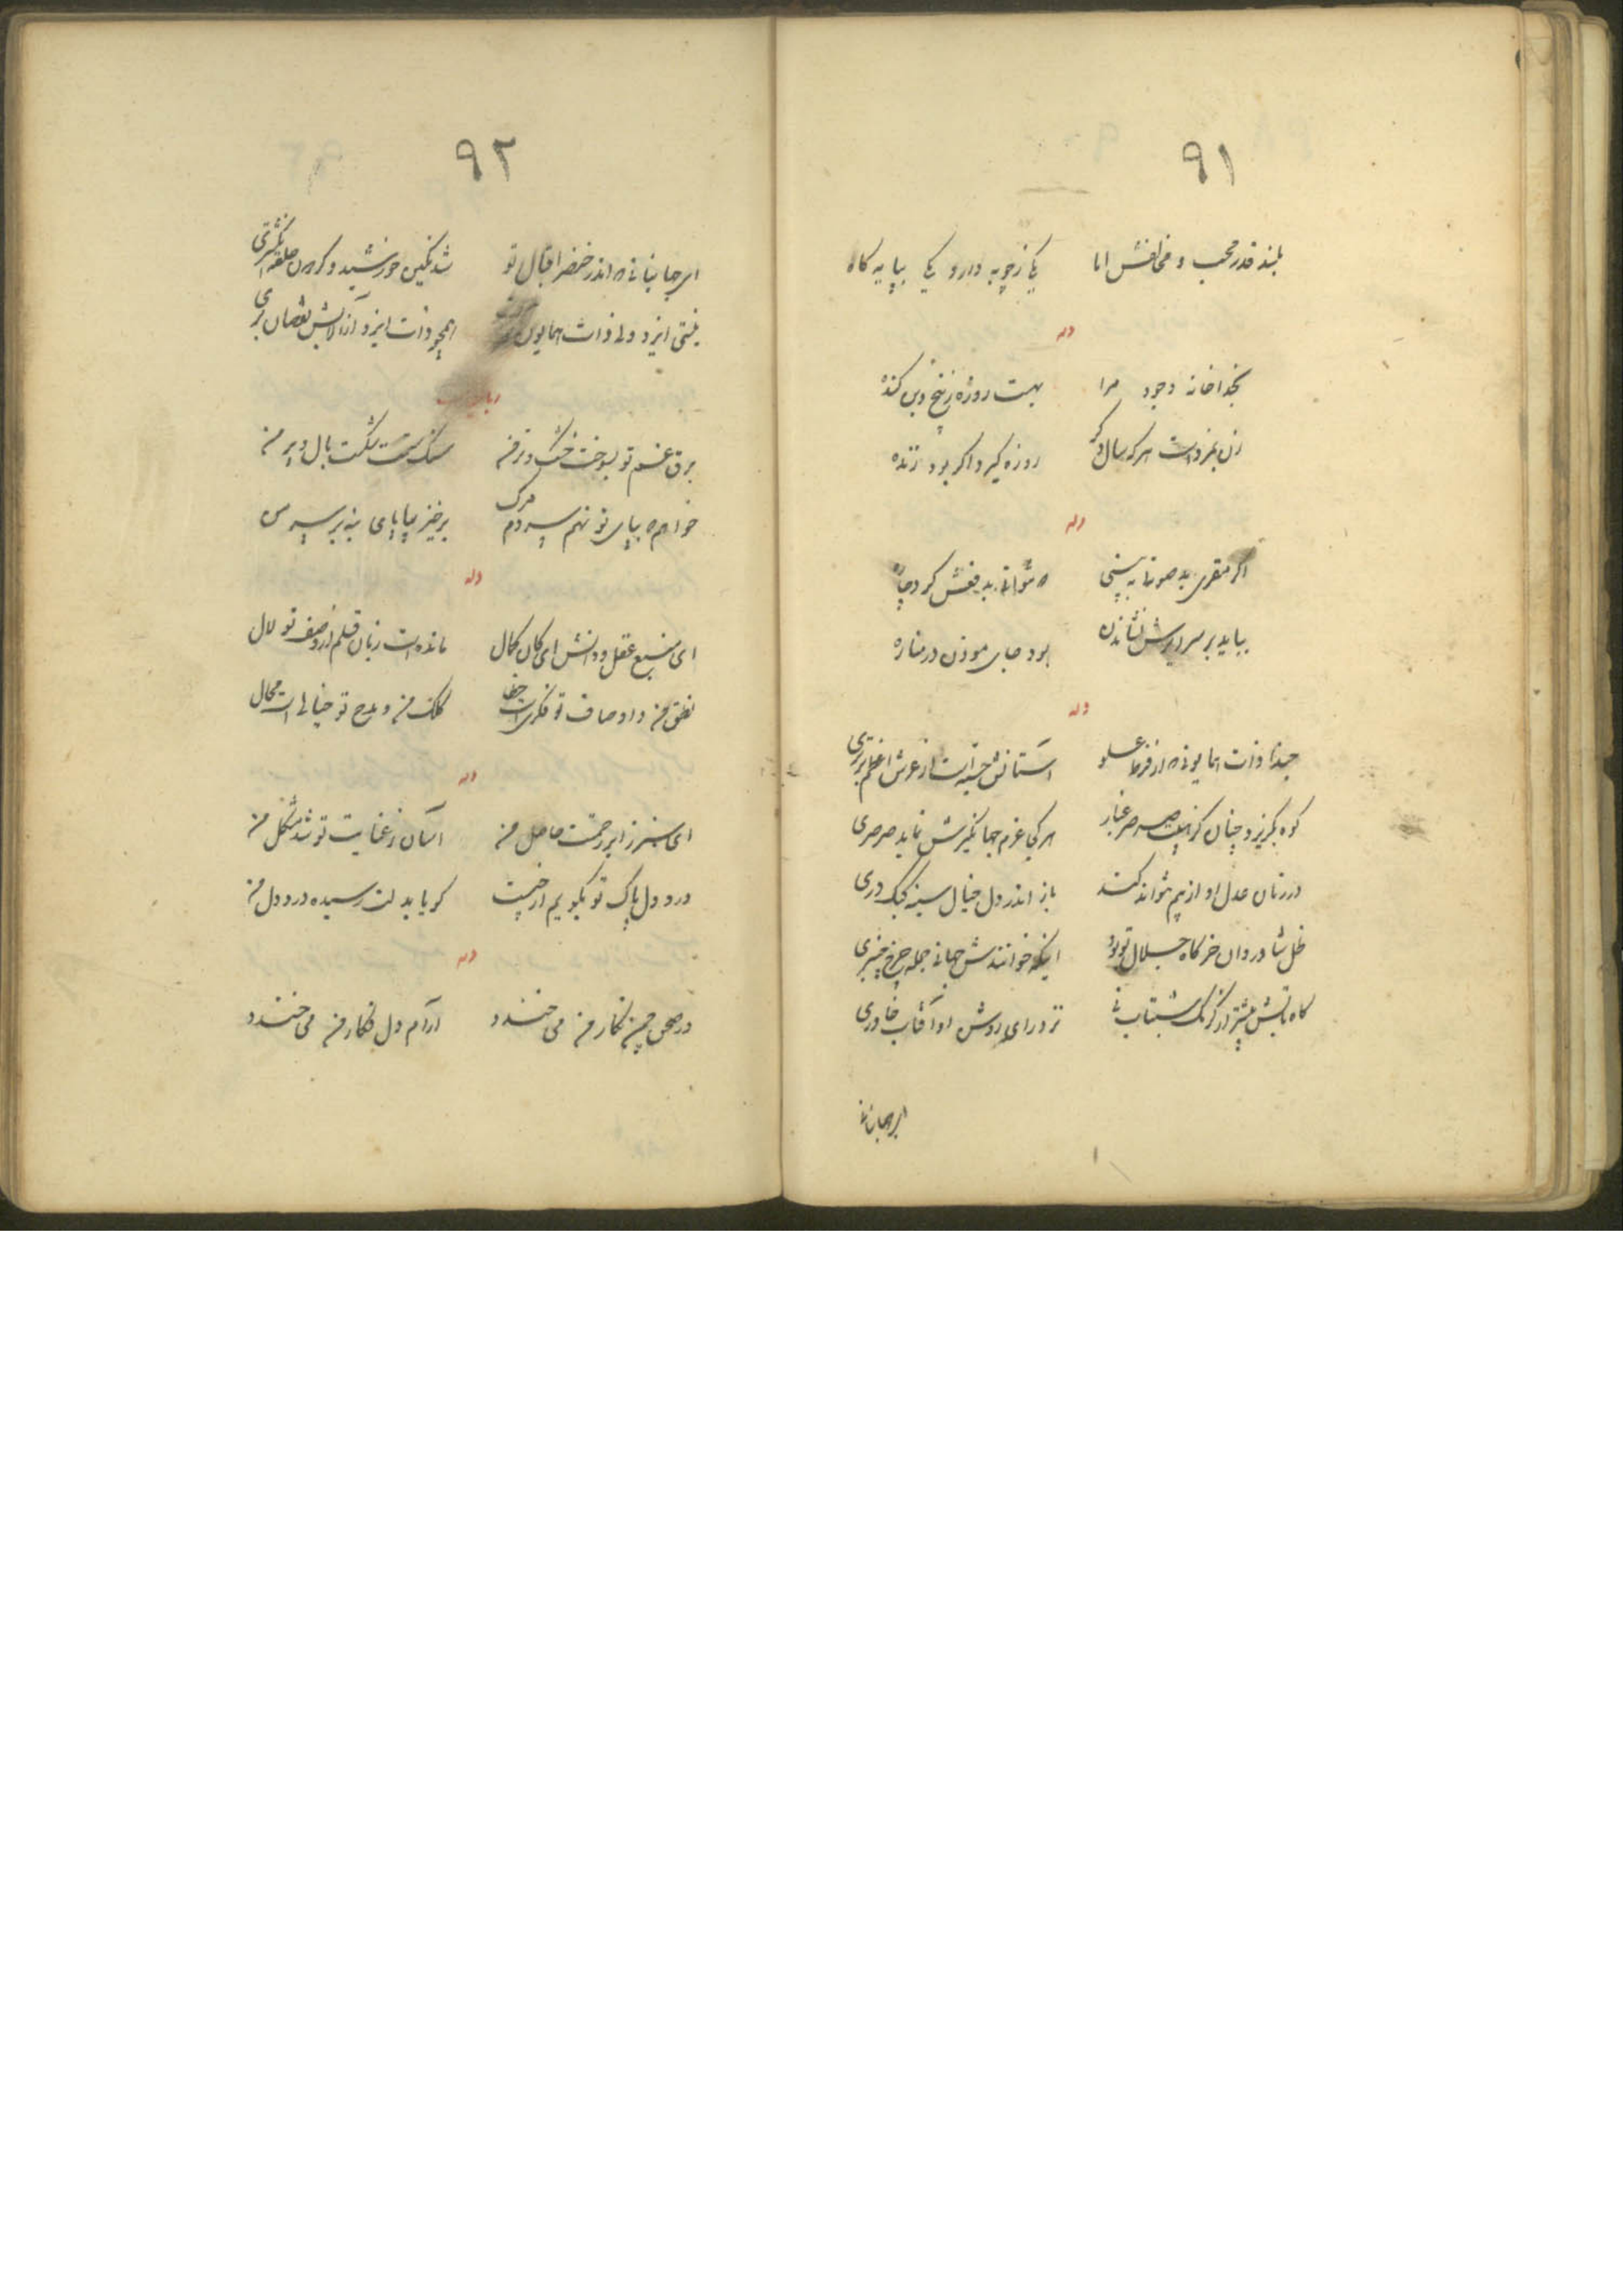 ۹۱
بلند قدر محب و مخالفش اما یکی ز چوبه دار و یکی بپایه گاه
وله
بخدا خانه وجود مرا بهت روزه ز بیخ و بن کنده
زن بمزد است هر که سال دگر روزه گیرد اگر بود زنده
وله
اگر مقری بد صوتا به بینی که نتوانی بدفعش کرد چاره
بباید بر سر دارش نشاندن بود جای موذن در مناره
وله
حبذا ذات همایونی که از فرط علو آستانش جسته است از عرش اعظم برتری
کوه بگریزد چنان کز صرصر غبار هر کی عزم جهانگیرش نماید صرصری
در زمان عدل او از بیم نتواند کند باز اندر دل خیال سینه کبک دری
ظل شادروان خرگاه جلال تو بود اینکه خوانندش جهانی جمله چرخ چنبری
گاه تابش بیشتر از کرمک شبتاب نی نزد رای روشن او آفتاب خاوری
ای جهانبانی
۹۲
ای جهانبانی که اندر خنصر اقبال تو شد نگین خورشید و گردون حلقه انگشتری
نیستی ایزد ولی ذات همایون همچو ذات ایزد از آلایش نقصان بری
رباعیات
برق غم تو بسوخت خشک و تر من سنگ ستمت شکست بال و پر من
خواهم که بپای تو نهم سر دم مرگ برخیز بیا پای بنه بر سر من
وله
ای منبع عقل و دانش ای کان کمال مانده است زبان قلم از وصف تو لال
نطق من و اوصاف تو فکری است خطا کلک من و مدح تو خیالی است محال
وله
ای سبز ز ابر رحمتت حاصل من آسان ز عنایت تو شد مشکل من
درد دل پاک تو بگویم از چیست گویا بدلت رسیده درد دل من
وله
در صحن چمن نگار من می خندد آرام دل فکار من می خندد